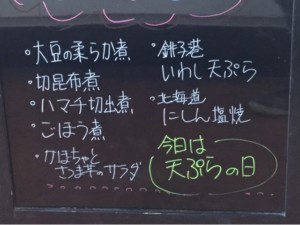 ・大豆の柔らか煮
・切昆布煮
・ハマチ切出煮
・ごぼう煮
・かぼちゃと
さつま芋のサラダ
・銚子港
いわし天ぷら
・北海道
にしん塩焼
今日は
天ぷらの日